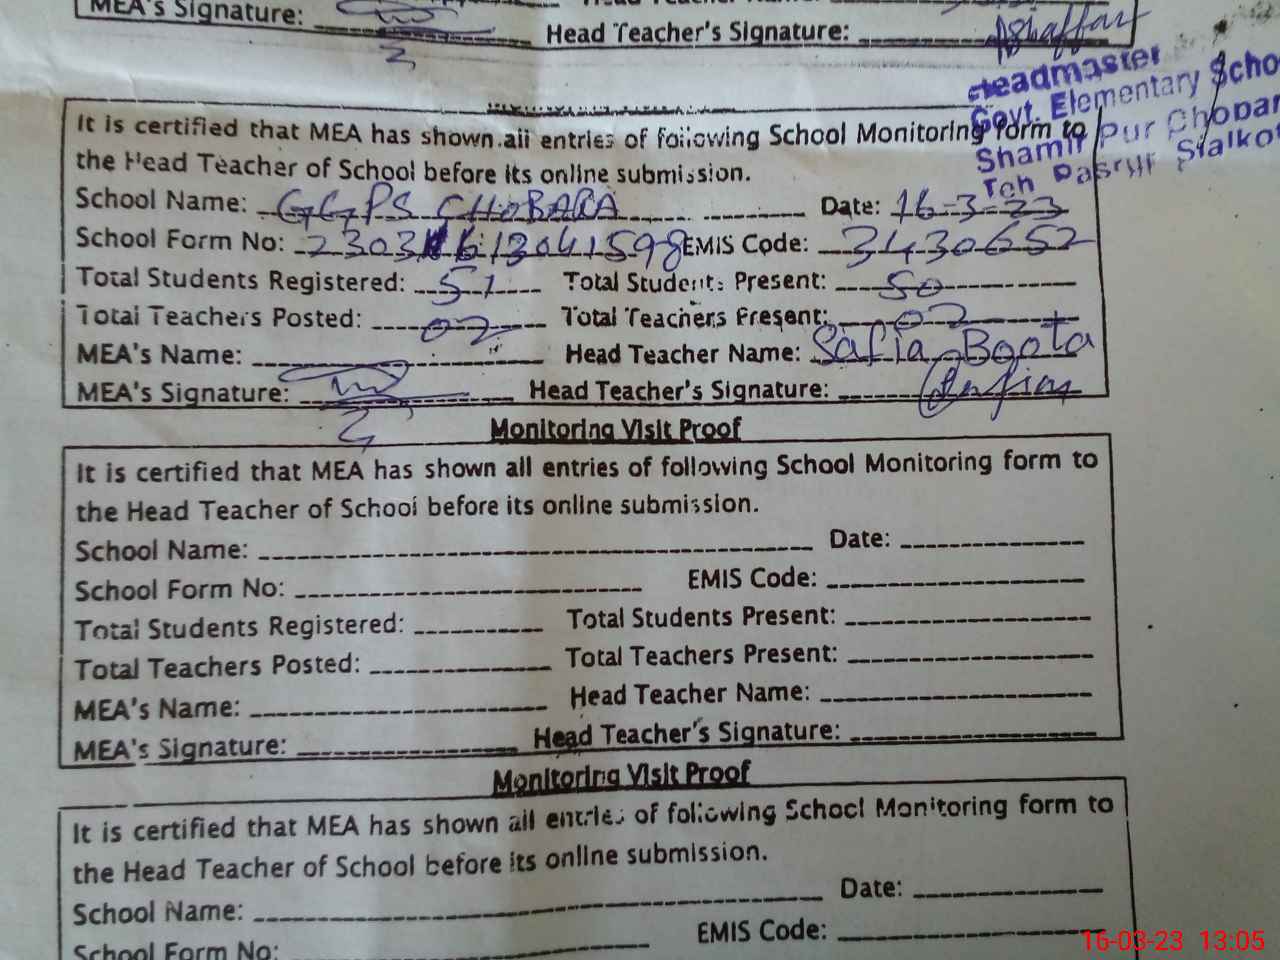 MEA's Signature: Head Teacher's Signature: Ashaffar
Headmaster
Govt. Elementary Schoo
Shamir Pur Chobar
Teh Pasrur Sialkot
It is certified that MEA has shown all entries of following School Monitoring form to
the Head Teacher of School before its online submission.
School Name: GGPS CHOBARA Date: 16-3-23
School Form No: EMIS Code: 3430652
Total Students Registered: 51 Total Students Present: 50
Total Teachers Posted: 02 Total Teachers Present: 02
MEA's Name: Head Teacher Name: Safia Boota
MEA's Signature: Head Teacher's Signature:
Monitoring Visit Proof
It is certified that MEA has shown all entries of following School Monitoring form to
the Head Teacher of School before its online submission.
School Name: Date:
School Form No: EMIS Code:
Total Students Registered: Total Students Present:
Total Teachers Posted: Total Teachers Present:
MEA's Name: Head Teacher Name:
MEA's Signature: Head Teacher's Signature:
Monitoring Visit Proof
It is certified that MEA has shown all entries of following School Monitoring form to
the Head Teacher of School before its online submission.
School Name: Date:
School Form No: EMIS Code:
16-03-23 13:05